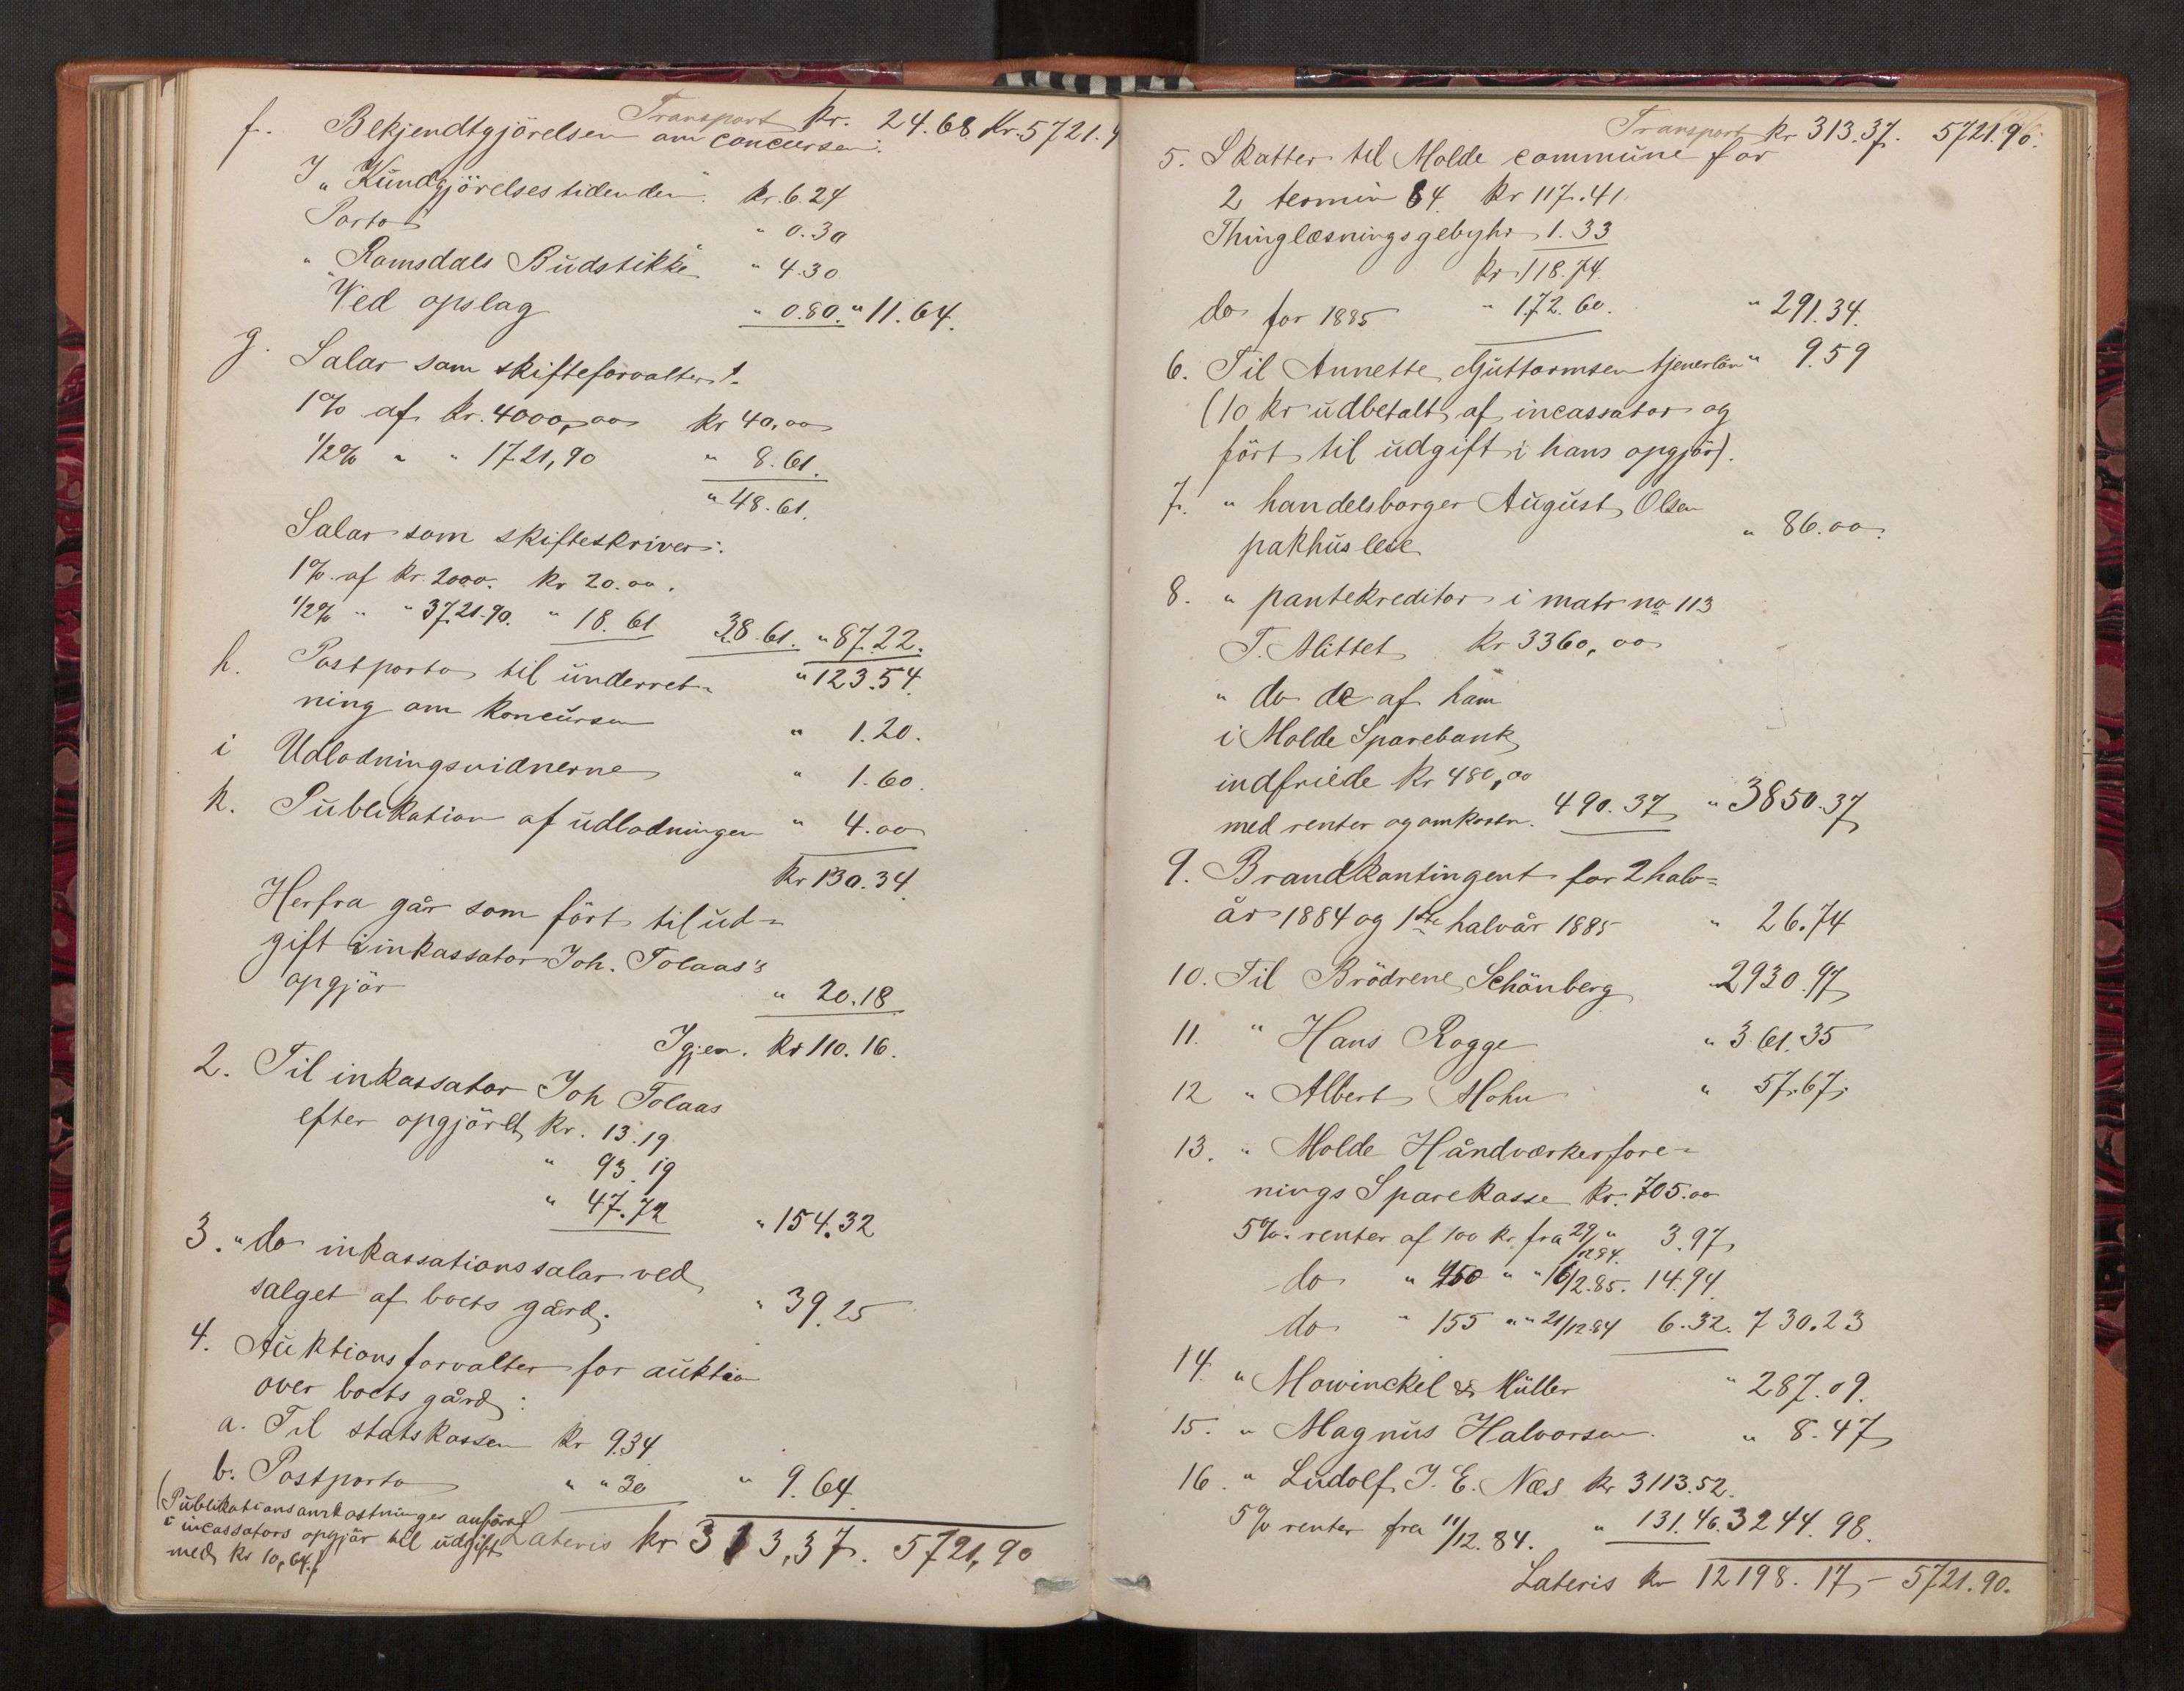 Transport kr. 24.68. Kr. 5721.9
f. Bekjendtgjörelsen om concursen:
I „Kundgjörelsestidenden" kr. 6.24
Porto " 0.30
" Romsdals Budstikke " 4.30
Ved opslag " 0.80. " 11.64.
g. Salar som skifteforvalter:
1% af kr. 4000,00 kr 40,00
1/2% " " 1721,90 " 8.61.
" 48.61.
Salar som skifteskriver:
1% af kr. 2000. kr 20.00.
1/2% " " 3721.90. " 18.61 38.61. " 87.22.
" 123.54.
h. Postporto til underret-
ning om koncursen " 1.20.
i Udlodningsvidnerne " 1.60.
k. Publikation af udlodningen " 4.00
kr 130.34.
Herfra går som fört til ud-
gift i inkassator Joh. Tolaas's
opgjör " 20.18
Igjen. kr 110.16.
2. Til inkassator Joh Tolaas
efter opgjörelt kr. 13.19
" 93.19
" 47.72 " 154.32
3. " do inkassationssalar ved
salget af boets gård. " 39.25
4. Auktionsforvalter for auktion
over boets gård:
a. Til statskassen kr 9.34
b. Postporto " " 30 " 9.64
(Publikationsomkostninger anfört
i incassators opgjör til udgift
med kr 10,64.)
Lateris kr 313,37. 5721,90
Transport kr 313.37. 5721.90.
5. Skatter til Molde commune for
2 termin 84. kr 117.41.
Thinglæsningsgebyhr 1.33
kr 118.74.
do for 1885 " 172.60. " 291.34.
6. Til Annette Guttormsen tjenerlön " 9.59
(10 kr udbetalt af incassator og
fört til udgift i hans opgjör).
7. " handelsborger August Olsen
pakhusleie " 86.00.
8. " pantekreditor i matr no 113
T. Mittet kr 3360,00
" do de af ham
i Molde Sparebank
indfriede kr 480,00
med renter og omkostn. 490.37 " 3850.37
9. Brandkontingent for 2 halv-
år 1884 og 1ste halvår 1885 " 26.74
10. Til Brödrene Schönberg " 2930.97
11. " Hans Rogge " 361.35
12 " Albert Mohn " 57.67.
13. " Molde Håndværkerfore-
nings Sparekasse kr. 705.00
5% renter af 100 kr fra 29/12 84. " 3.97
do " 450 " " 16/2.85. 14.94.
do " 155 " " 21/12.84 6.32. 730.23
14. " Mowinckel & Müller " 287.09.
15. " Magnus Halvorsen. " 8.47
16. " Ludolf J. E. Næs kr 3113.52.
5% renter fra 11/12.84. " 131.46. 3244.98.
Lateris kr 12198.17 - 5721.90.